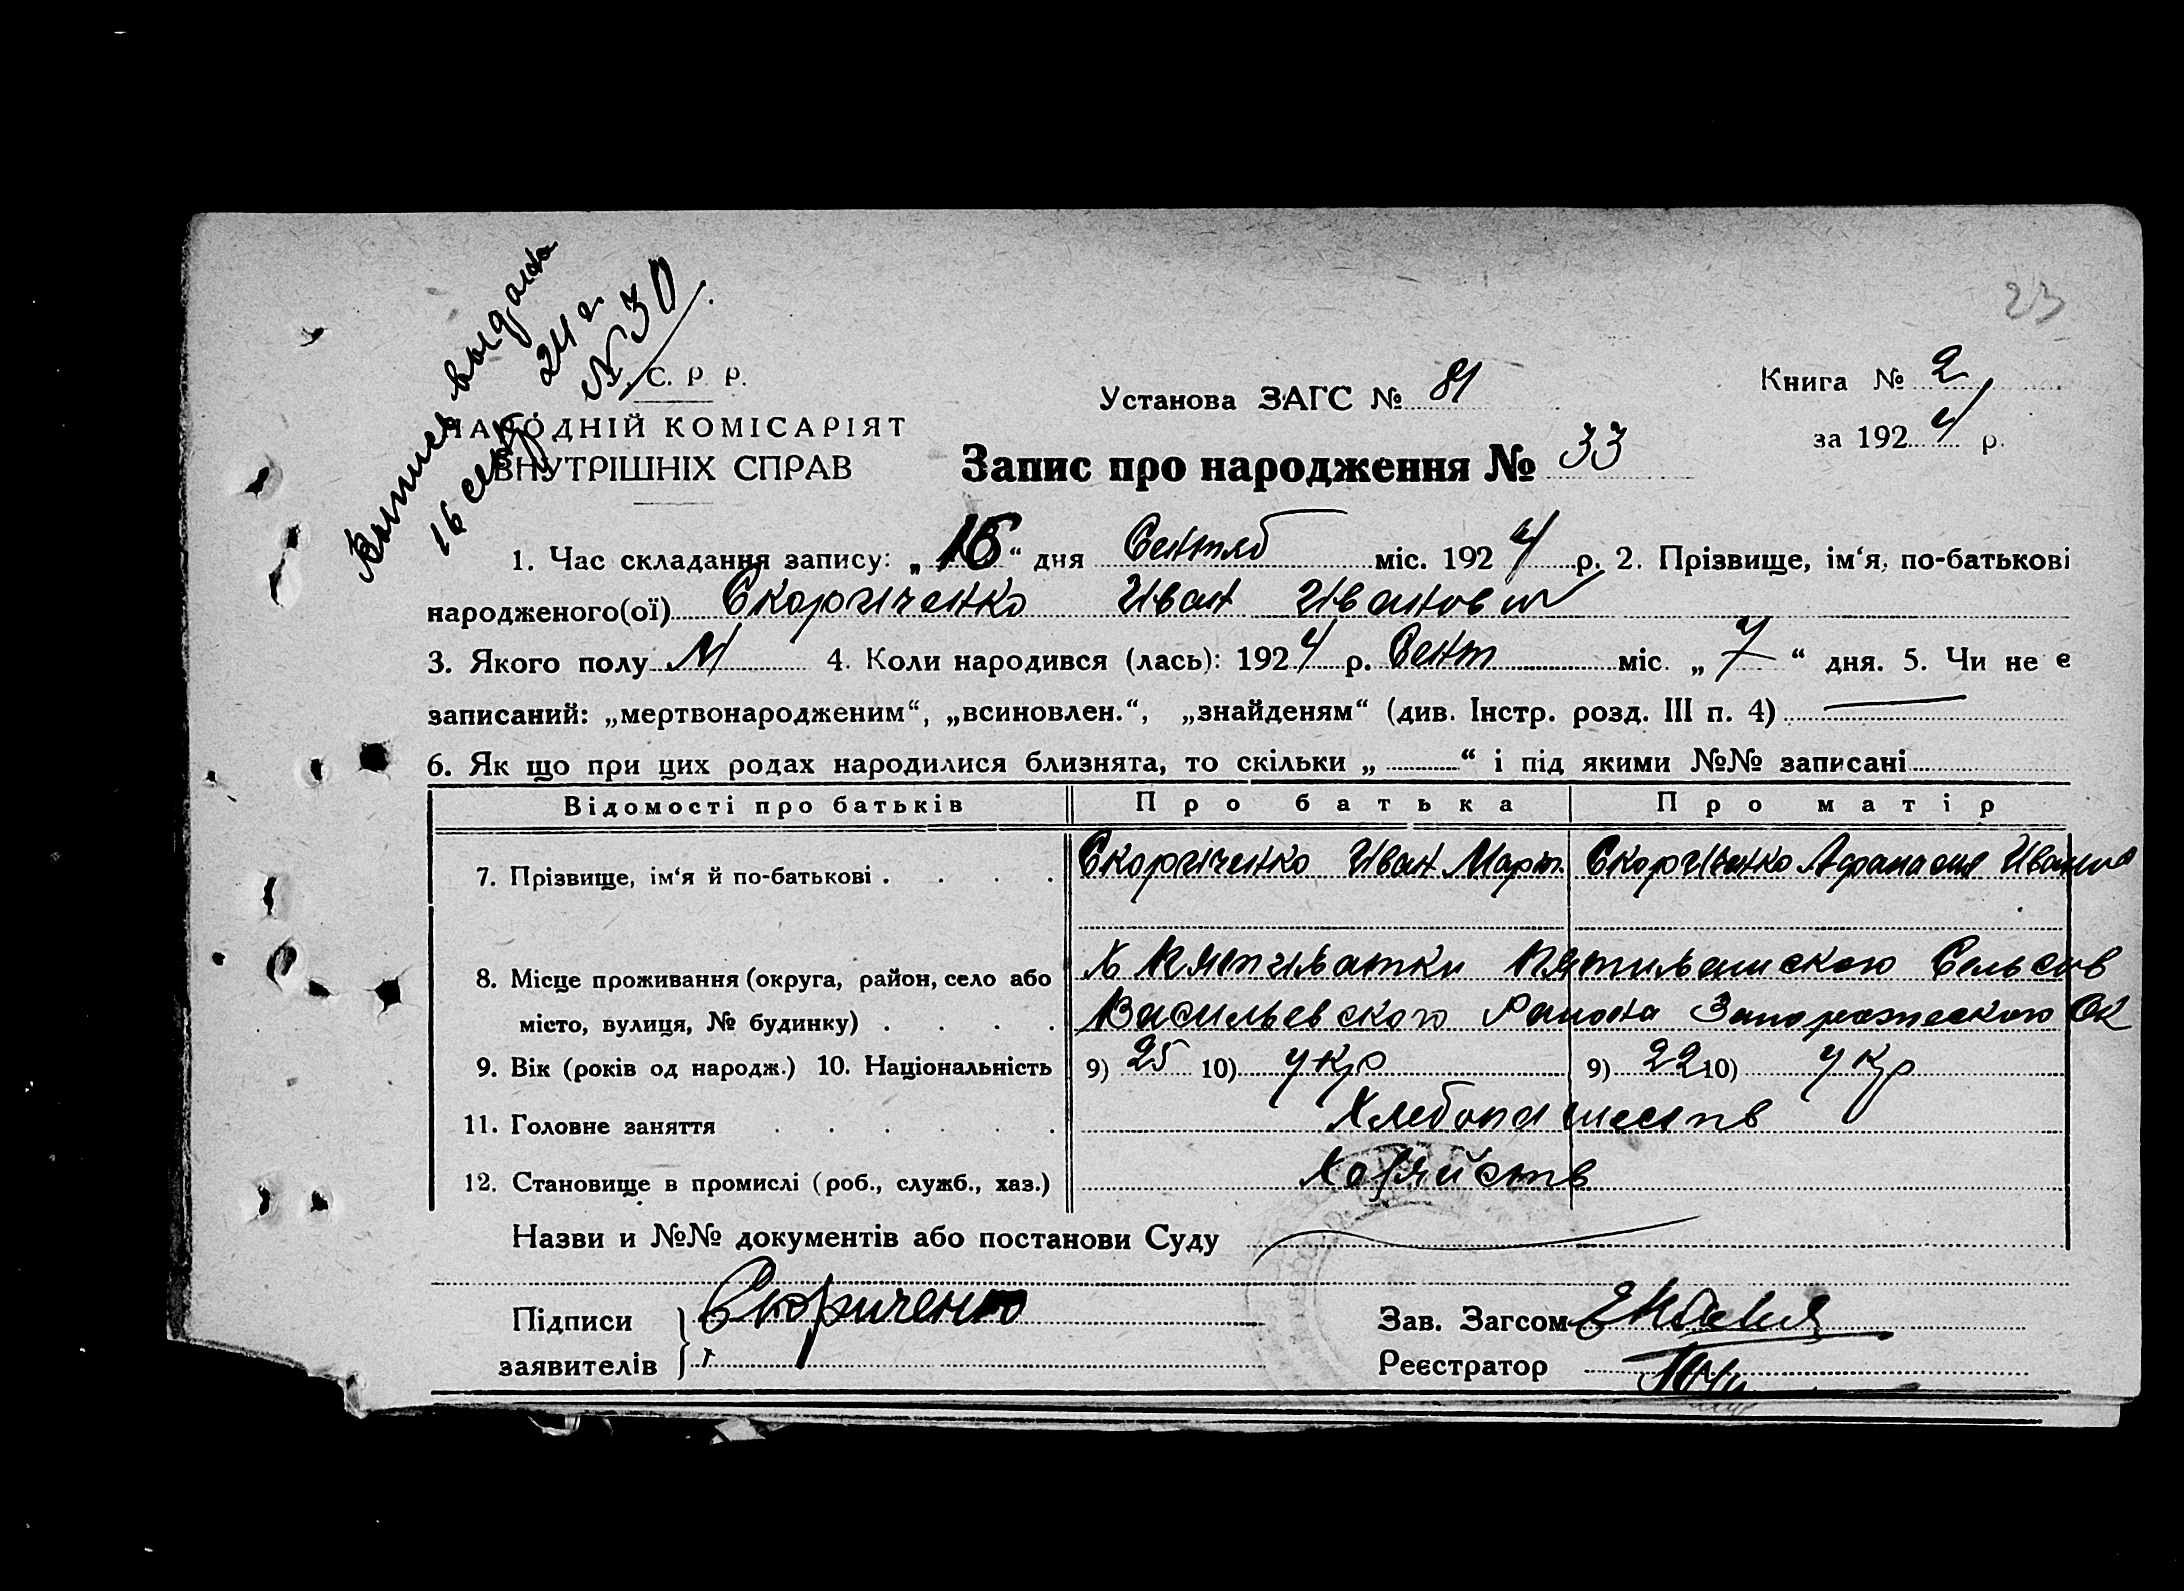 23
Выпись выдана
16 сент. 24 г.
№ 30
С. Р. Р.
НАРОДНІЙ КОМІСАРІЯТ
ВНУТРІШНІХ СПРАВ
Установа ЗАГС № 81
Книга № 2
за 1924 р.
Запис про народження № 33
1. Час складання запису: „16“ дня Сентяб міс. 1924 р. 2. Прізвище, ім‘я, по-батькові
народженого(ої) Скориченко Иван Иванович
3. Якого полу М 4. Коли народився (лась): 1924 р. Сент міс. „7“ дня. 5. Чи не є
записаний: „мертвонародженим“, „всиновлен.“, „знайденям“ (див. Інстр. розд. III п. 4)
6. Як що при цих родах народилися близнята, то скільки „ “ і під якими №№ записані
Відомості про батьків Про батька Про матір
7. Прізвище, ім‘я й по-батькові Скориченко Иван Март. Скориченко Иванов
8. Місце проживання (округа, район, село або
місто, вулиця, № будинку)
Х Пятихатки Сельсов
Васильевского Района Запорожского Ок
9. Вік (років од народж.) 10. Національність 9) 25 10) укр 9) 22 10) укр
11. Головне заняття Хлебопашеств
12. Становище в промислі (роб., служб., хаз.) Хозяйств
Назви и №№ документів або постанови Суду
Підписи
заявителів
Скориченко
Зав. Загсом
Реєстратор